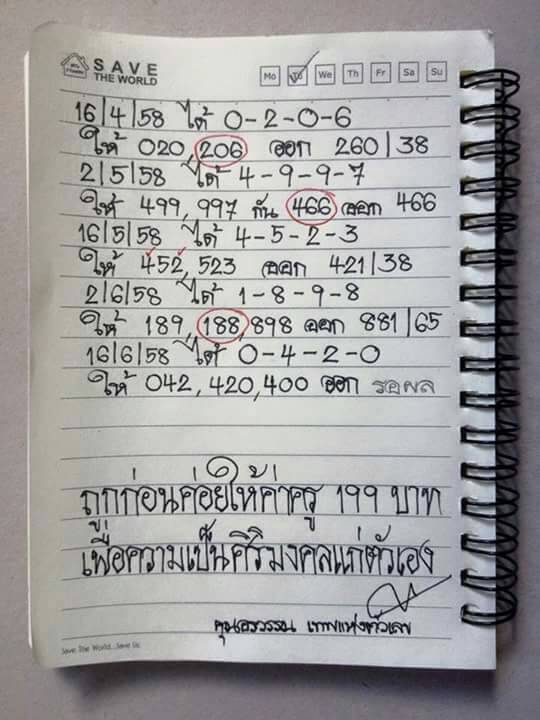 SAVE
THE WORLD
Mo Tu We Th Fr Sa Su
16/4/58 ได้ 0-2-0-6
ให้ 020, 206 ออก 260/38
2/5/58 ได้ 4-9-9-7
ให้ 499, 997 กัน 466 ออก 466
16/5/58 ได้ 4-5-2-3
ให้ 452, 523 ออก 421/38
2/6/58 ได้ 1-8-9-8
ให้ 189, 188, 898 ออก 881/65
16/6/58 ได้ 0-4-2-0
ให้ 042, 420, 400 ออก รอผล
ถูกก่อนค่อยให้ค่าครู 199 บาท
เพื่อความเป็นศิริมงคลแก่ตัวเอง
เทพแห่งตัวเลข
Save The World...Save Us